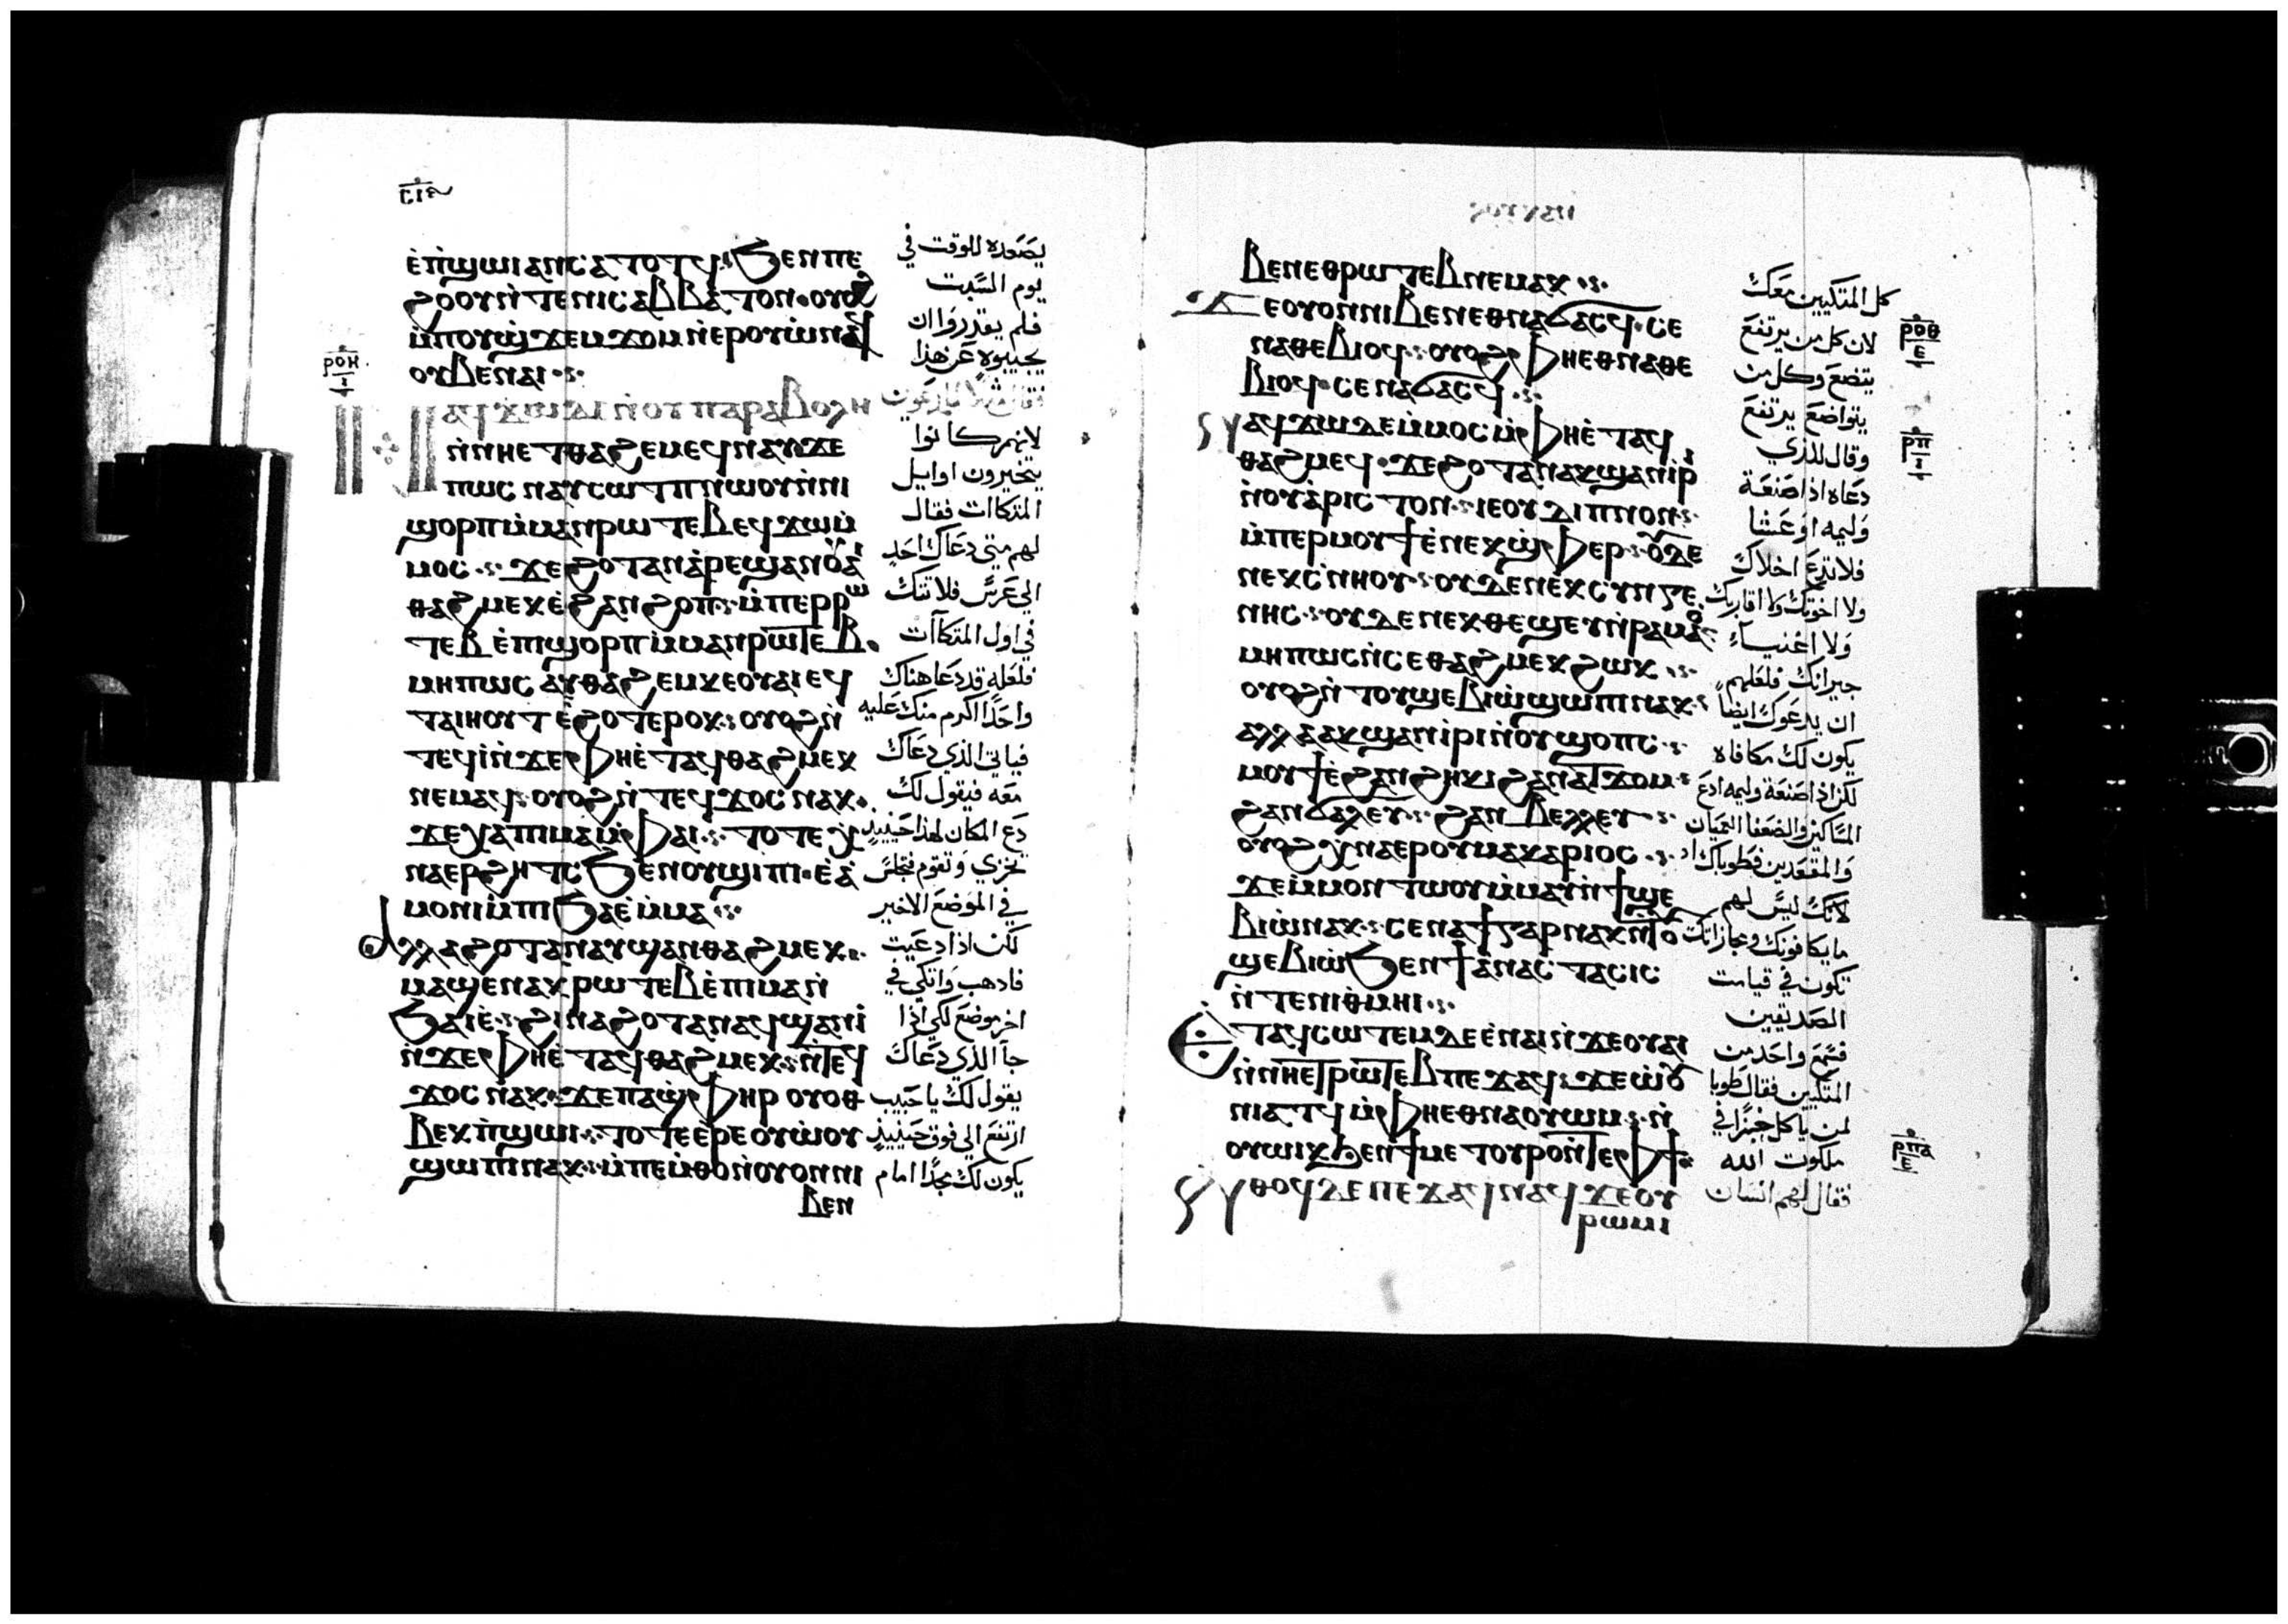 ⲥⲓⲁ
ⲉ̀ⲡ̀ϣⲱⲓ ⲁⲛ ⲥⲁⲧⲟⲧϥ ϧⲉⲛ ⲡⲉ
ϩⲟⲟⲩ ⲛ̀ⲧⲉ ⲛⲓⲥⲁⲃⲃⲁⲧⲟⲛ ⲟⲩⲟϩ
ⲙ̀ⲡⲟⲩϣ̀ϫⲉⲙϫⲟⲙ ⲛ̀ⲉⲣⲟⲩⲱ̀ ⲛⲁϥ
ⲟⲩⲃⲉ ⲛⲁⲓ
ⲛⲁϥϫⲱ ⲇⲉ ⲛ̀ⲟⲩⲡⲁⲣⲁⲃⲟⲗⲏ
ⲛ̀ⲛⲏⲉⲧⲑⲁϩⲉⲙ ⲉϥⲛⲁⲩ ϫⲉ
ⲡⲱⲥ ⲛⲁⲩⲥⲱⲧⲡ ⲛⲱⲟⲩ ⲛ̀ⲛⲓ
ϣⲟⲣⲡ ⲙ̀ⲙⲁⲛⲣⲱⲧⲉⲃ ⲉϥϫⲱ ⲙ̀
ⲙⲟⲥ ϫⲉ ϩⲟⲧⲁⲛ ⲁ̀ⲣⲉϣⲁⲛ ⲟⲩⲁⲓ
ⲑⲁϩⲙⲉⲕ ⲉ̀ϩⲁⲛϩⲟⲡ ⲙ̀ⲡⲉⲣⲣⲱ
ⲧⲉⲃ ⲉ̀ⲡⲓϣⲟⲣⲡ ⲙ̀ⲙⲁⲛⲣⲱⲧⲉⲃ
ⲙⲏⲡⲱⲥ ⲁⲩⲑⲁϩⲉⲙ ⲕⲉⲟⲩⲁⲓ ⲉϥ
ⲧⲁⲓⲏⲟⲩⲧ ⲉ̀ϩⲟⲧⲉⲣⲟⲕ ⲟⲩⲟϩ ⲛ̀
ⲧⲉϥⲓ̀ ⲛ̀ϫⲉ ⲫⲏⲉ̀ⲧⲁϥⲑⲁϩⲙⲉⲕ
ⲛⲉⲙⲁϥ ⲟⲩⲟϩ ⲛ̀ⲧⲉϥϫⲟⲥ ⲛⲁⲕ
ϫⲉ ⲭⲁ ⲡⲓⲙⲁ ⲙ̀ⲫⲁⲓ ⲧⲟⲧⲉ ⲭ̀
ⲛⲁⲉⲣϩⲏⲧⲥ ϧⲉⲛ ⲟⲩϣⲓⲡⲓ ⲉ̀ⲁ̀
ⲙⲟⲛⲓ ⲙ̀ⲡⲓϧⲁⲉ̀ ⲙ̀ⲙⲁ
ⲁⲗⲗⲁ ϩⲟⲧⲁⲛ ⲁⲩϣⲁⲛⲑⲁϩⲙⲉⲕ
ⲙⲁϣⲉⲛⲁⲕ ⲣⲱⲧⲉⲃ ⲉ̀ⲡⲓⲙⲁ ⲛ̀
ϧⲁⲓⲉ̀ ϩⲓⲛⲁ ϩⲟⲧⲁⲛ ⲁϥϣⲁⲛⲓ̀
ⲛ̀ϫⲉ ⲫⲏⲉ̀ⲧⲁϥⲑⲁϩⲙⲉⲕ ⲛ̀ⲧⲉϥ
ϫⲟⲥ ⲛⲁⲕ ϫⲉ ⲡⲁϣ̀ⲫⲏⲣ ⲟⲩⲟⲑ
ⲃⲉⲕ ⲡ̀ϣⲱⲓ ⲧⲟⲧⲉ ⲉ̀ⲣⲉ ⲟⲩⲱ̀ⲟⲩ
ϣⲱⲡⲓ ⲛⲁⲕ ⲙ̀ⲡⲉⲙ̀ⲑⲟ ⲛ̀ⲟⲩⲟⲛ ⲛⲓ
ⲃⲉⲛ
ⲣⲟⲏ
ⲓ
يصعده للوقت في
يوم السبت
فلم يقدروا ان
يجيبوه عن هذا
فقال مثلا للمدعوين
لانهم كانوا
يتخيرون اوايل
المتكاات فقال
لهم متى دعاك احد
الى عرس فلا تتك
في اول المتكاآت
فلعله قد دعا هناك
واحدًا اكرم منك عليه
فياتي الذي دعاك
معه فيقول لك
دع المكان لهذا حينيذ
تخزي وتقوم فتجلس
في الموضع الاخير
لكن اذا دعيت
فاذهب واتكي في
اخر موضع لكي اذا
جا الذي دعاك
يقول لك يا حبيب
ارتفع الى فوق حينيذ
يكون لك مجدًا امام
ⲃⲉⲛ ⲉⲑⲣⲱⲧⲉⲃ ⲛⲉⲙⲁⲕ
ϫⲉ ⲟⲩⲟⲛ ⲛⲓⲃⲉⲛ ⲉⲑⲛⲁϭⲁⲥϥ ⲥⲉ
ⲛⲁⲑⲉⲃⲓⲟϥ ⲟⲩⲟϩ ⲫⲏⲉⲑⲛⲁⲑⲉ
ⲃⲓⲟϥ ⲥⲉⲛⲁϭⲁⲥϥ
ⲛⲁϥϫⲱ ⲇⲉ ⲙ̀ⲙⲟⲥ ⲙ̀ⲫⲏⲉ̀ⲧⲁϥ
ⲑⲁϩⲙⲉϥ ϫⲉ ϩⲟⲧⲁⲛ ⲁⲕϣⲁⲛⲓ̀ⲣⲓ
ⲛ̀ⲟⲩⲁ̀ⲣⲓⲥⲧⲟⲛ ⲓⲉ ⲟⲩⲇⲓⲡⲛⲟⲛ
ⲙ̀ⲡⲉⲣⲙⲟⲩϯ ⲉ̀ⲛⲉⲕϣ̀ⲫⲉⲣ ⲟⲩⲇⲉ
ⲛⲉⲕⲥ̀ⲛⲏⲟⲩ ⲟⲩⲇⲉ ⲛⲉⲕⲥⲩⲛⲅⲉ
ⲛⲏⲥ ⲟⲩⲇⲉ ⲛⲉⲕⲑⲉϣⲉⲩ ⲛ̀ⲣⲁⲙⲁⲟ̀
ⲙⲏⲡⲱⲥ ⲛ̀ⲥⲉⲑⲁϩⲙⲉⲕ ϩⲱⲕ
ⲟⲩⲟϩ ⲛ̀ⲧⲟⲩϣⲉⲃⲓⲱ̀ ϣⲱⲡⲓ ⲛⲁⲕ
ⲁⲗⲗⲁ ⲁⲕϣⲁⲛⲓ̀ⲣⲓ ⲛ̀ⲟⲩϣⲟⲡⲥ
ⲙⲟⲩϯ ⲉ̀ϩⲁⲛϩⲏⲕⲓ ϩⲁⲛⲁⲧϫⲟⲙ
ϩⲁⲛϭⲁⲗⲉⲩ ϩⲁⲛⲃⲉⲗⲗⲉⲩ
ⲟⲩⲟϩ ⲭ̀ⲛⲁⲉⲣⲟⲩⲙⲁⲕⲁⲣⲓⲟⲥ
ϫⲉ ⲙ̀ⲙⲟⲛ ⲧⲱⲟⲩ ⲙ̀ⲙⲁⲩ ⲛ̀ϯϣⲉ
ⲃⲓⲱ̀ ⲛⲁⲕ ⲥⲉⲛⲁϯ ⲅⲁⲣ ⲛⲁⲕ ⲛ̀ⲧⲟⲩ
ϣⲉⲃⲓⲱ̀ ϧⲉⲛ ϯⲁ̀ⲛⲁⲥⲧⲁⲥⲓⲥ
ⲛ̀ⲧⲉ ⲛⲓⲑ̀ⲙⲏⲓ
ⲉⲧⲁϥⲥⲱⲧⲉⲙ ⲇⲉ ⲉ̀ⲛⲁⲓ ⲛ̀ϫⲉ ⲟⲩⲁⲓ
ⲛ̀ⲛⲏⲉⲧⲣⲱⲧⲉⲃ ⲡⲉϫⲁϥ ϫⲉ ⲱ̀ⲟⲩ
ⲛⲓⲁⲧϥ ⲙ̀ⲫⲏⲉⲑⲛⲁⲟⲩⲱⲙ ⲛ̀
ⲟⲩⲱⲓⲕ ϧⲉⲛ ϯⲙⲉⲧⲟⲩⲣⲟ ⲛ̀ⲧⲉ ⲫϯ
ⲛⲑⲟϥ ⲇⲉ ⲡⲉϫⲁϥ ⲛⲁϥ ϫⲉ ⲟⲩ
ⲣⲱⲙⲓ
كل المتكيين معك
لان كل من يرتفع
يتضع وكل من
يتواضع يرتفع
وقال للذي
دعاه اذا صنعة
وليمه او عشا
فلا تدع اخلاك
ولا اخوتك ولا اقاربك
ولا اغنيآء
جيرانك فلعلهم
ان يدعوك ايضاً
يكون لك مكافاه
لكن اذا صنعة وليمه ادع
المساكين والضعفا العميان
والمقعدين فطوباك
لانك ليس لهم
ما يكافونك ومجازاتك
تكون في قيامت
الصديقين
فسمع واحد من
المتكيين فقال طوبا
لمن ياكل خبزًا في
ملكوت الله
فقال لهم انسان
ⲣⲟⲑ
ⲉ
ⲣⲡ
ⲓ
ⲣⲡⲁ
ⲉ